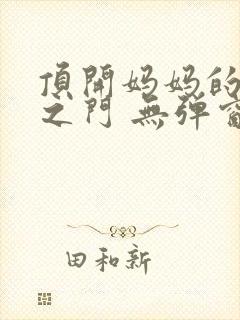 頂開妈妈的
之门 無弹窗
田和新